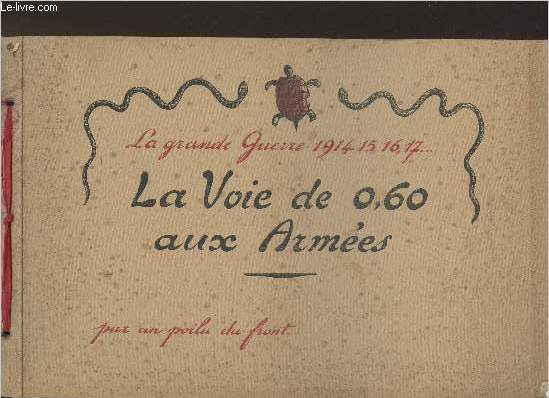 © Le-livre.com
La grande Guerre 1914.15.16.17...
La Voie de 0,60
aux Armées
par un poilu du front.